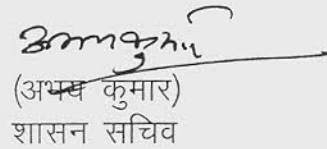 (अभय कुमार)
शासन सचिव